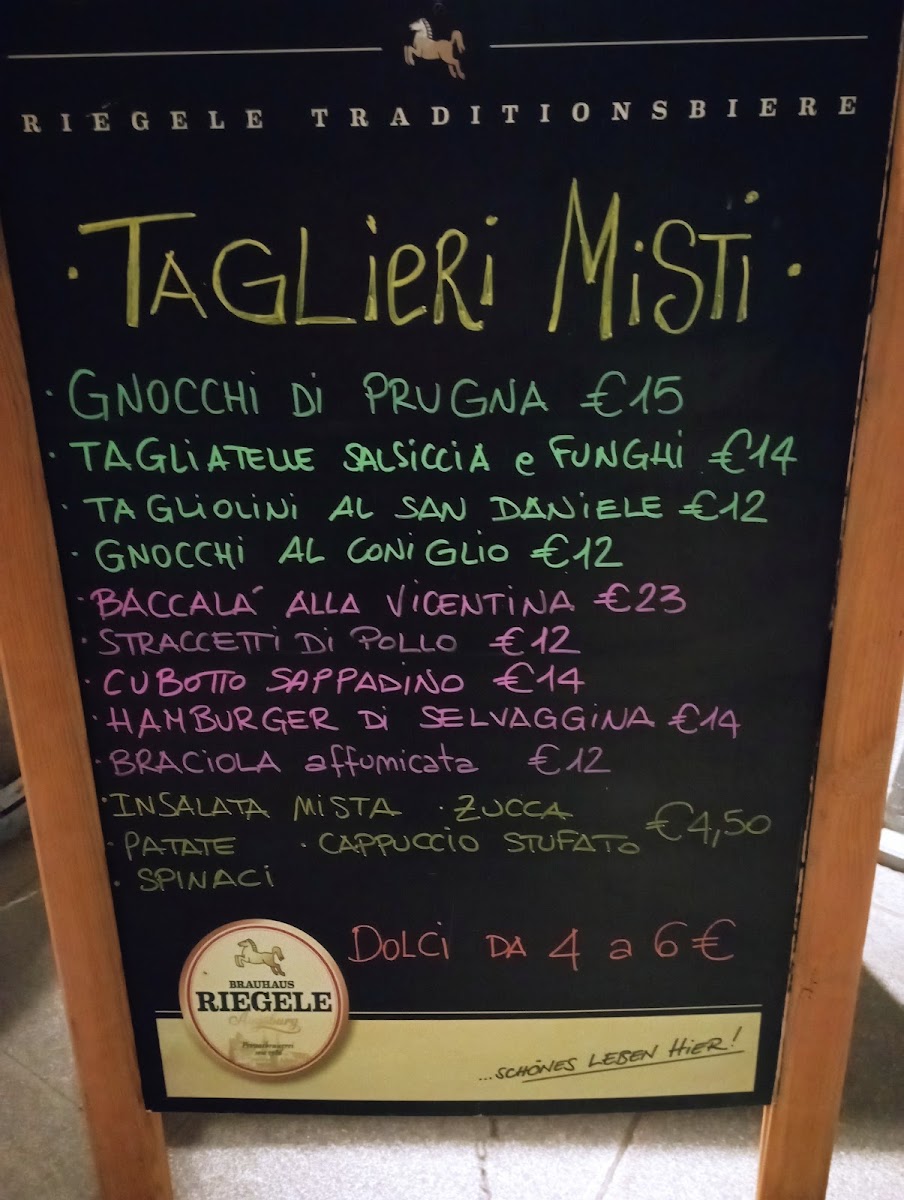 RIEGELE TRADITIONSBIERE
· TAGLIERI MISTI ·
· GNOCCHI DI PRUGNA €15
· TAGLIATELLE SALSICCIA e FUNGHI €14
· TAGLIOLINI AL SAN DANIELE €12
· GNOCCHI AL CONIGLIO €12
· BACCALA' ALLA VICENTINA €23
· STRACCETTI DI POLLO €12
· CUBOTTO SAPPADINO €14
· HAMBURGER DI SELVAGGINA €14
· BRACIOLA affumicata €12
· INSALATA MISTA · ZUCCA
· PATATE · CAPPUCCIO STUFATO €4,50
· SPINACI
DOLCI DA 4 a 6€
BRAUHAUS
RIEGELE
Augsburg
...SCHÖNES LEBEN HIER!